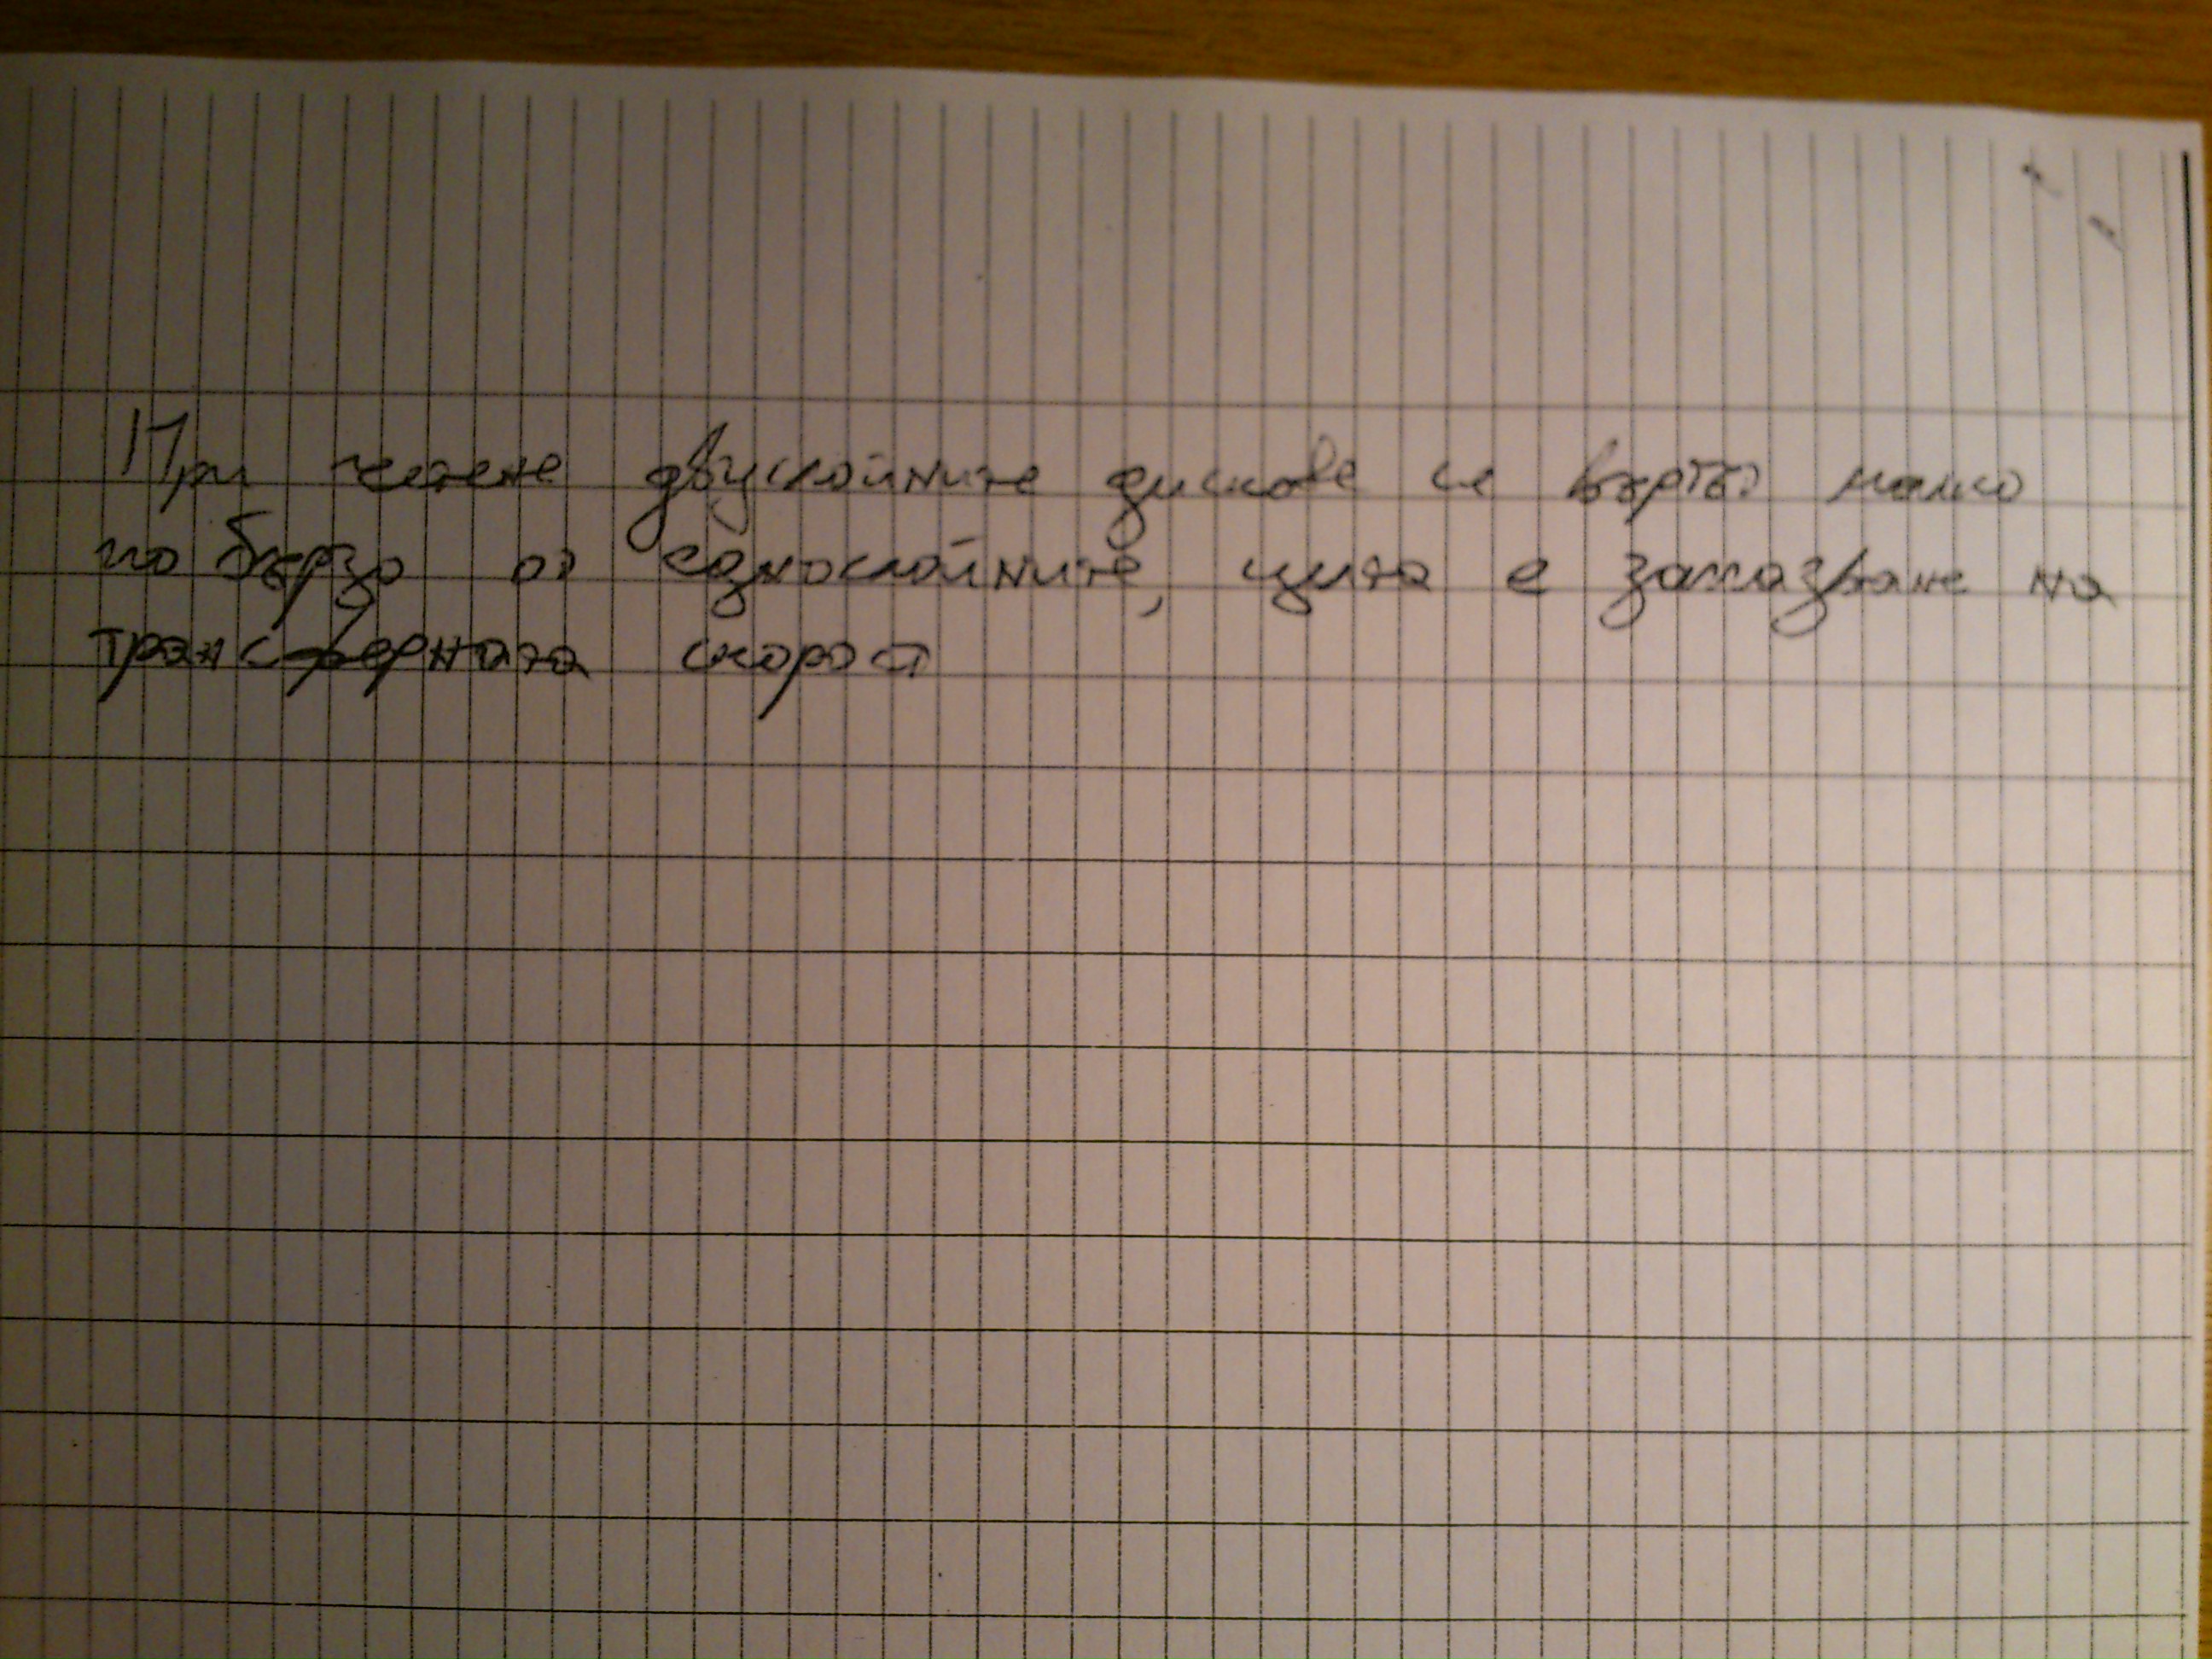 При четене двуслойните дискове се въртят малко
по бързо от еднослойните, цита е запазване на
трансферната скорост